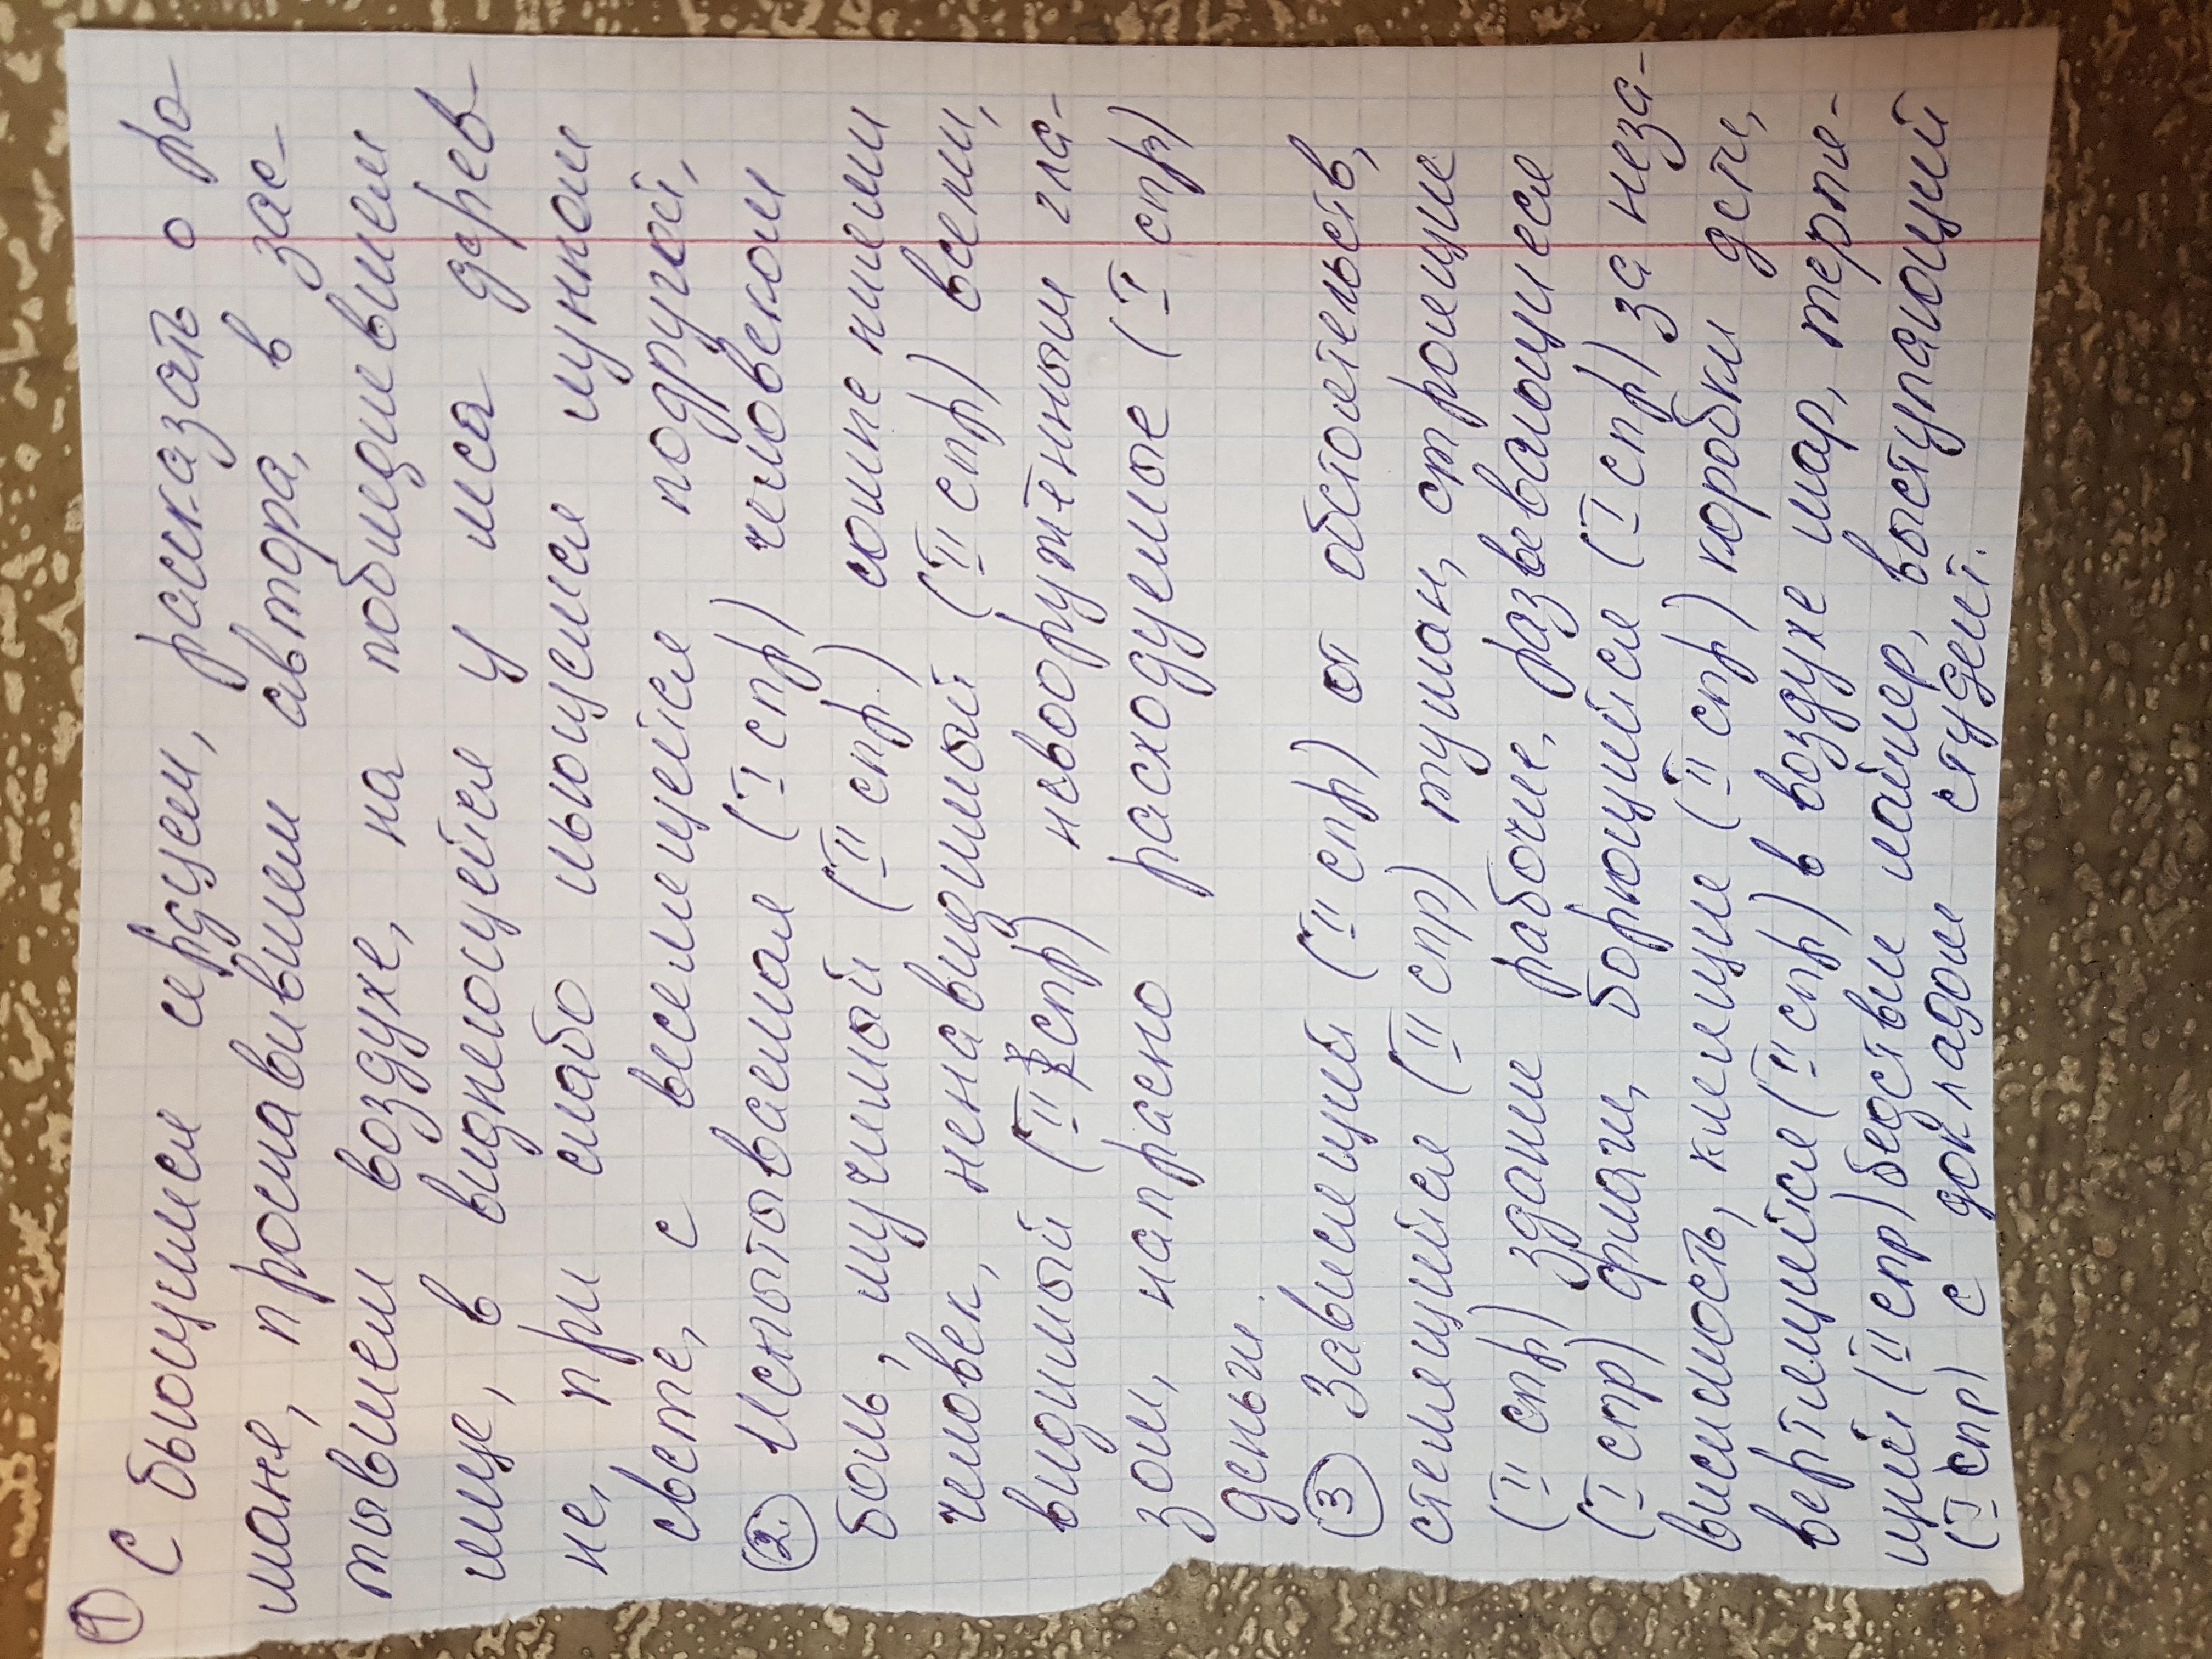 ①
С бьющимся сердцем, рассказать о ро-
мане, прославившем автора, в зас-
тывшем воздухе, на побледневшем
лице, в виднеющейся у леса дерев-
не, при слабо льющемся лунном
свете, с веселящейся подругой,
② Испытываемая (I спр) человеком
боль, мучимый (II спр) сомнениями
человек, ненавидимый (II спр) всеми,
видимый (II спр) невооружённым гла-
зом, напрасно расходуемые (I спр)
деньги.
③ Зависящий (II спр) от обстоятельств,
стелящийся (II спр) туман, строящие
(II спр) здание рабочие, развевающиеся
(I спр) флаги, борющийся (I спр) за неза-
висимость, клеящие (II спр) коробки дети,
вертящийся (II спр) в воздухе шар, терпя-
щий (II спр) бедствие лайнер, выступающий
(I спр) с докладом студент.